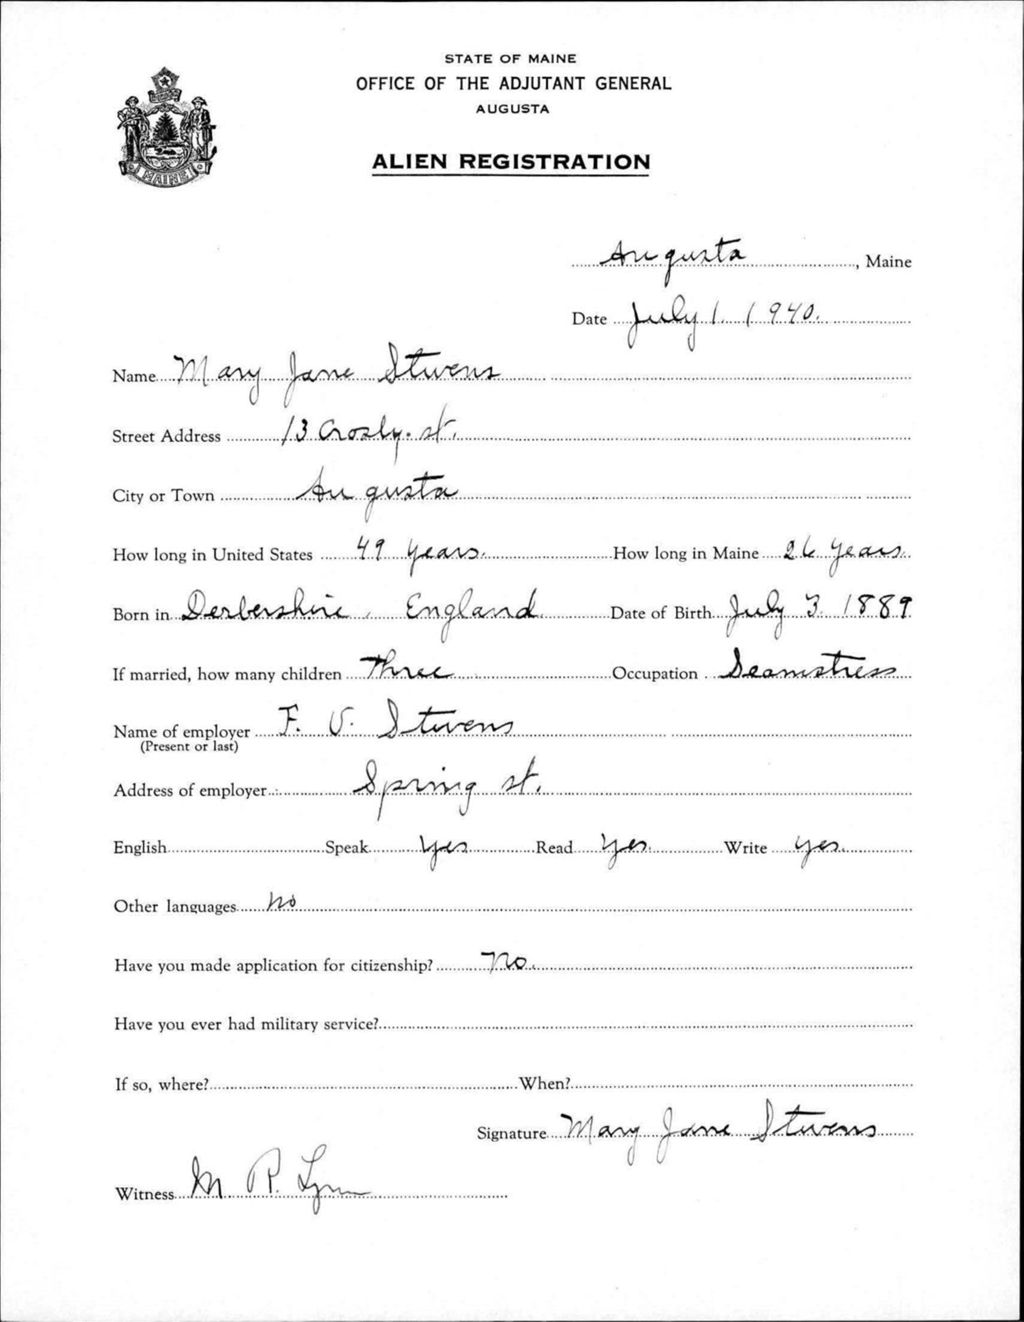 STATE OF MAINE
OFFICE OF THE ADJUTANT GENERAL
AUGUSTA
ALIEN REGISTRATION
MAINE
Augusta, Maine
Date July 1. 1940.
Name Mary Jane Stevens
Street Address 13 Crosby. st.
City or Town Augusta
How long in United States 49 years. How long in Maine 26 years.
Born in Derbershire, England Date of Birth July 3. 1889
If married, how many children Three Occupation Seamstress
Name of employer F. V. Stevens
(Present or last)
Address of employer Spring st.
English Speak yes Read yes. Write yes.
Other languages no
Have you made application for citizenship? No.
Have you ever had military service?
If so, where? When?
Signature Mary Jane Stevens
Witness M R. Lynn